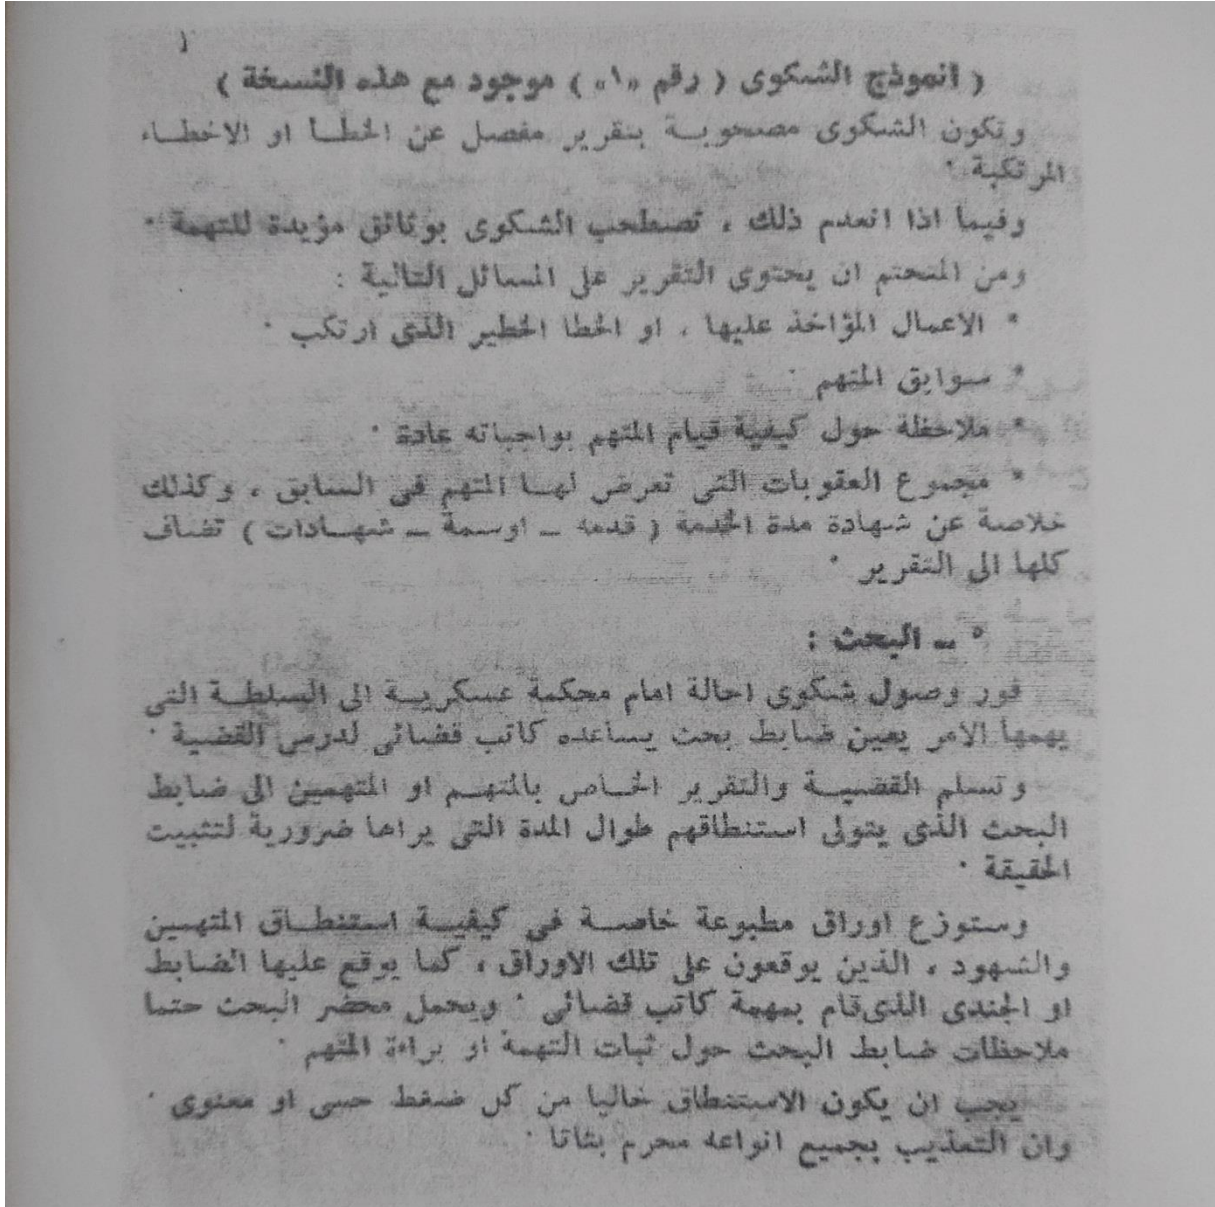 ( انموذج الشكوى ( رقم «١» ) موجود مع هذه النسخة )
وتكون الشكوى مصحوبة بتقرير مفصل عن الخطأ او الاخطاء
المرتكبة .
وفيما اذا انعدم ذلك ، تصطحب الشكوى بوثائق مؤيدة للتهمة .
ومن المتحتم ان يحتوى التقرير على المسائل التالية :
* الاعمال المؤاخذ عليها ، او الخطا الخطير الذى ارتكب .
* سوابق المتهم .
* ملاحظة حول كيفية قيام المتهم بواجباته عادة .
* مجموع العقوبات التى تعرض لها المتهم فى السابق ، وكذلك
خلاصة عن شهادة مدة الخدمة ( قدمه ــ اوسمة ــ شهادات ) تضاف
كلها الى التقرير .
° ــ البحث :
فور وصول شكوى احالة امام محكمة عسكرية الى السلطة التى
يهمها الامر يعين ضابط بحث يساعده كاتب قضائى لدرس القضية .
وتسلم القضية والتقرير الخاص بالمتهم او المتهمين الى ضابط
البحث الذى يتولى استنطاقهم طوال المدة التى يراها ضرورية لتثبيت
الحقيقة .
وستوزع اوراق مطبوعة خاصة فى كيفية استنطاق المتهمين
والشهود ، الذين يوقعون على تلك الاوراق ، كما يوقع عليها الضابط
او الجندى الذى قام بمهمة كاتب قضائى . ويحمل محضر البحث حتما
ملاحظات ضابط البحث حول ثبات التهمة او براءة المتهم .
يجب ان يكون الاستنطاق خاليا من كل ضغط حسى او معنوى .
وان التعذيب بجميع انواعه محرم بتاتا .